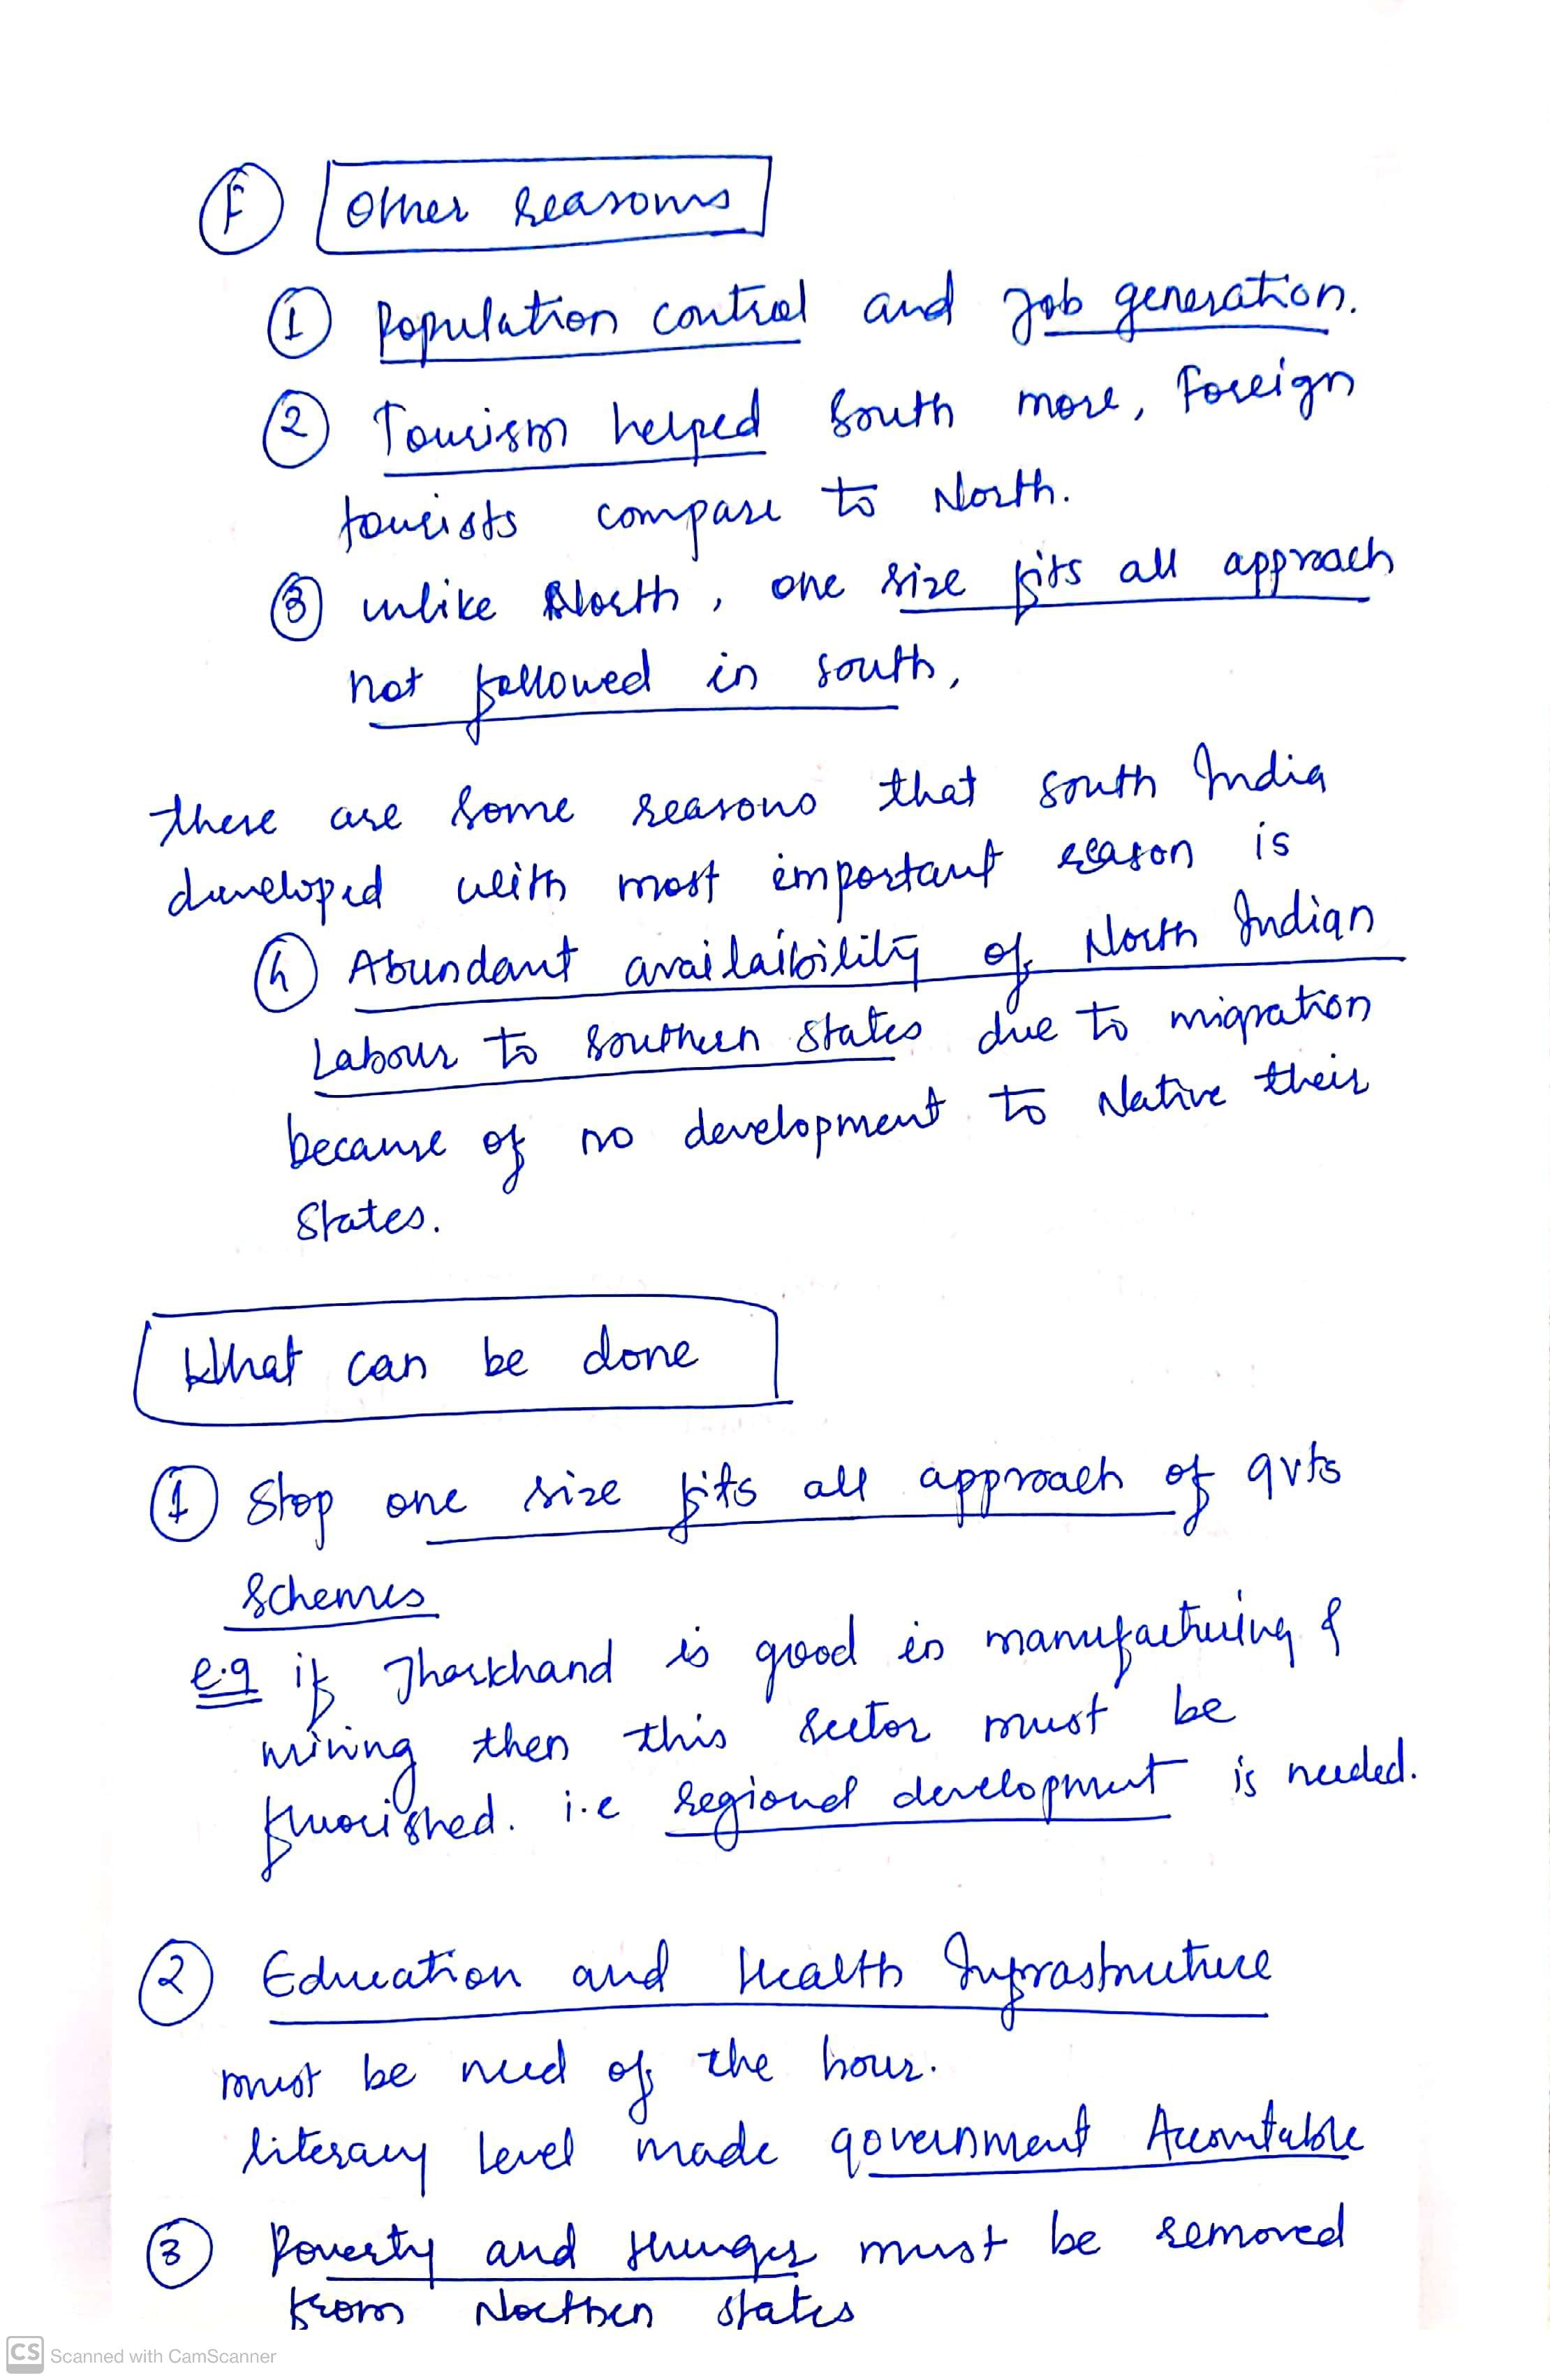 F Other reasons
1 Population control and Job generation.
2 Tourism helped South more, Foreign
tourists compare to North.
3 unlike North, one size fits all approach
not followed in south,
there are some reasons that south India
developed with most important reason is
h Abundant availaibility of North Indian
Labour to southern states due to migration
because of no development to Native their
States.
What can be done
1 Stop one size fits all approach of gvts
Schemes
e.g if Jharkhand is good in manufacturing &
mining then this sector must be
fluorished. i.e regional development is needed.
2 Education and Health Infrastructure
must be need of the hour.
literacy level made government Accountable
3 Poverty and Hunger must be removed
from Northen states
CS Scanned with CamScanner